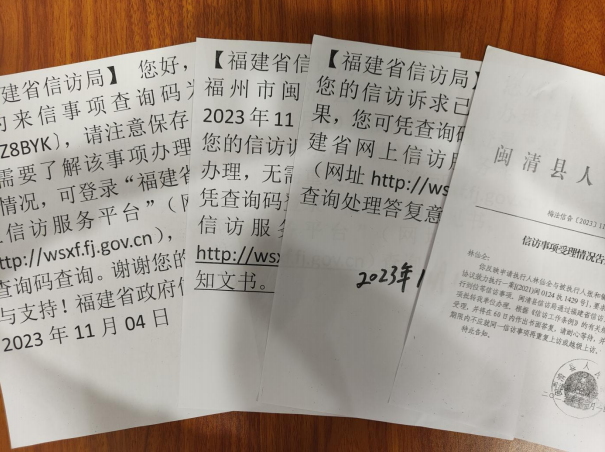 建省信访局】 您好,
的来信事项查询码为
Z8BYK〕,请注意保存
需要了解该事项办理
情况,可登录“福建省
上信访服务平台”(网
http://wsxf.fj.gov.cn),
查询码查询。谢谢您的
与支持!福建省政府信
2023 年 11 月 04 日
【福建省信访
福州市闽
2023年11
您的信访
办理,无需
凭查询码
信访服务
http://wsx
知文书。
【福建省信访局】
您的信访诉求已
果,您可凭查询码
建省网上信访服
(网址 http://ws
查询处理答复意
2023年1
闽清县人
信访事项受理情况告
林仙全:
你反映申请执行人林仙全与被执行人
行到位等信访事项,闽清县信访局通过福建省信访
项转送我单位办理。根据《信访工作条例》的有关
受理,并将在60日内作出书面答复。请耐心等待,
期限内不应就同一信访事项再重复上访或越级上访。
特此告知。